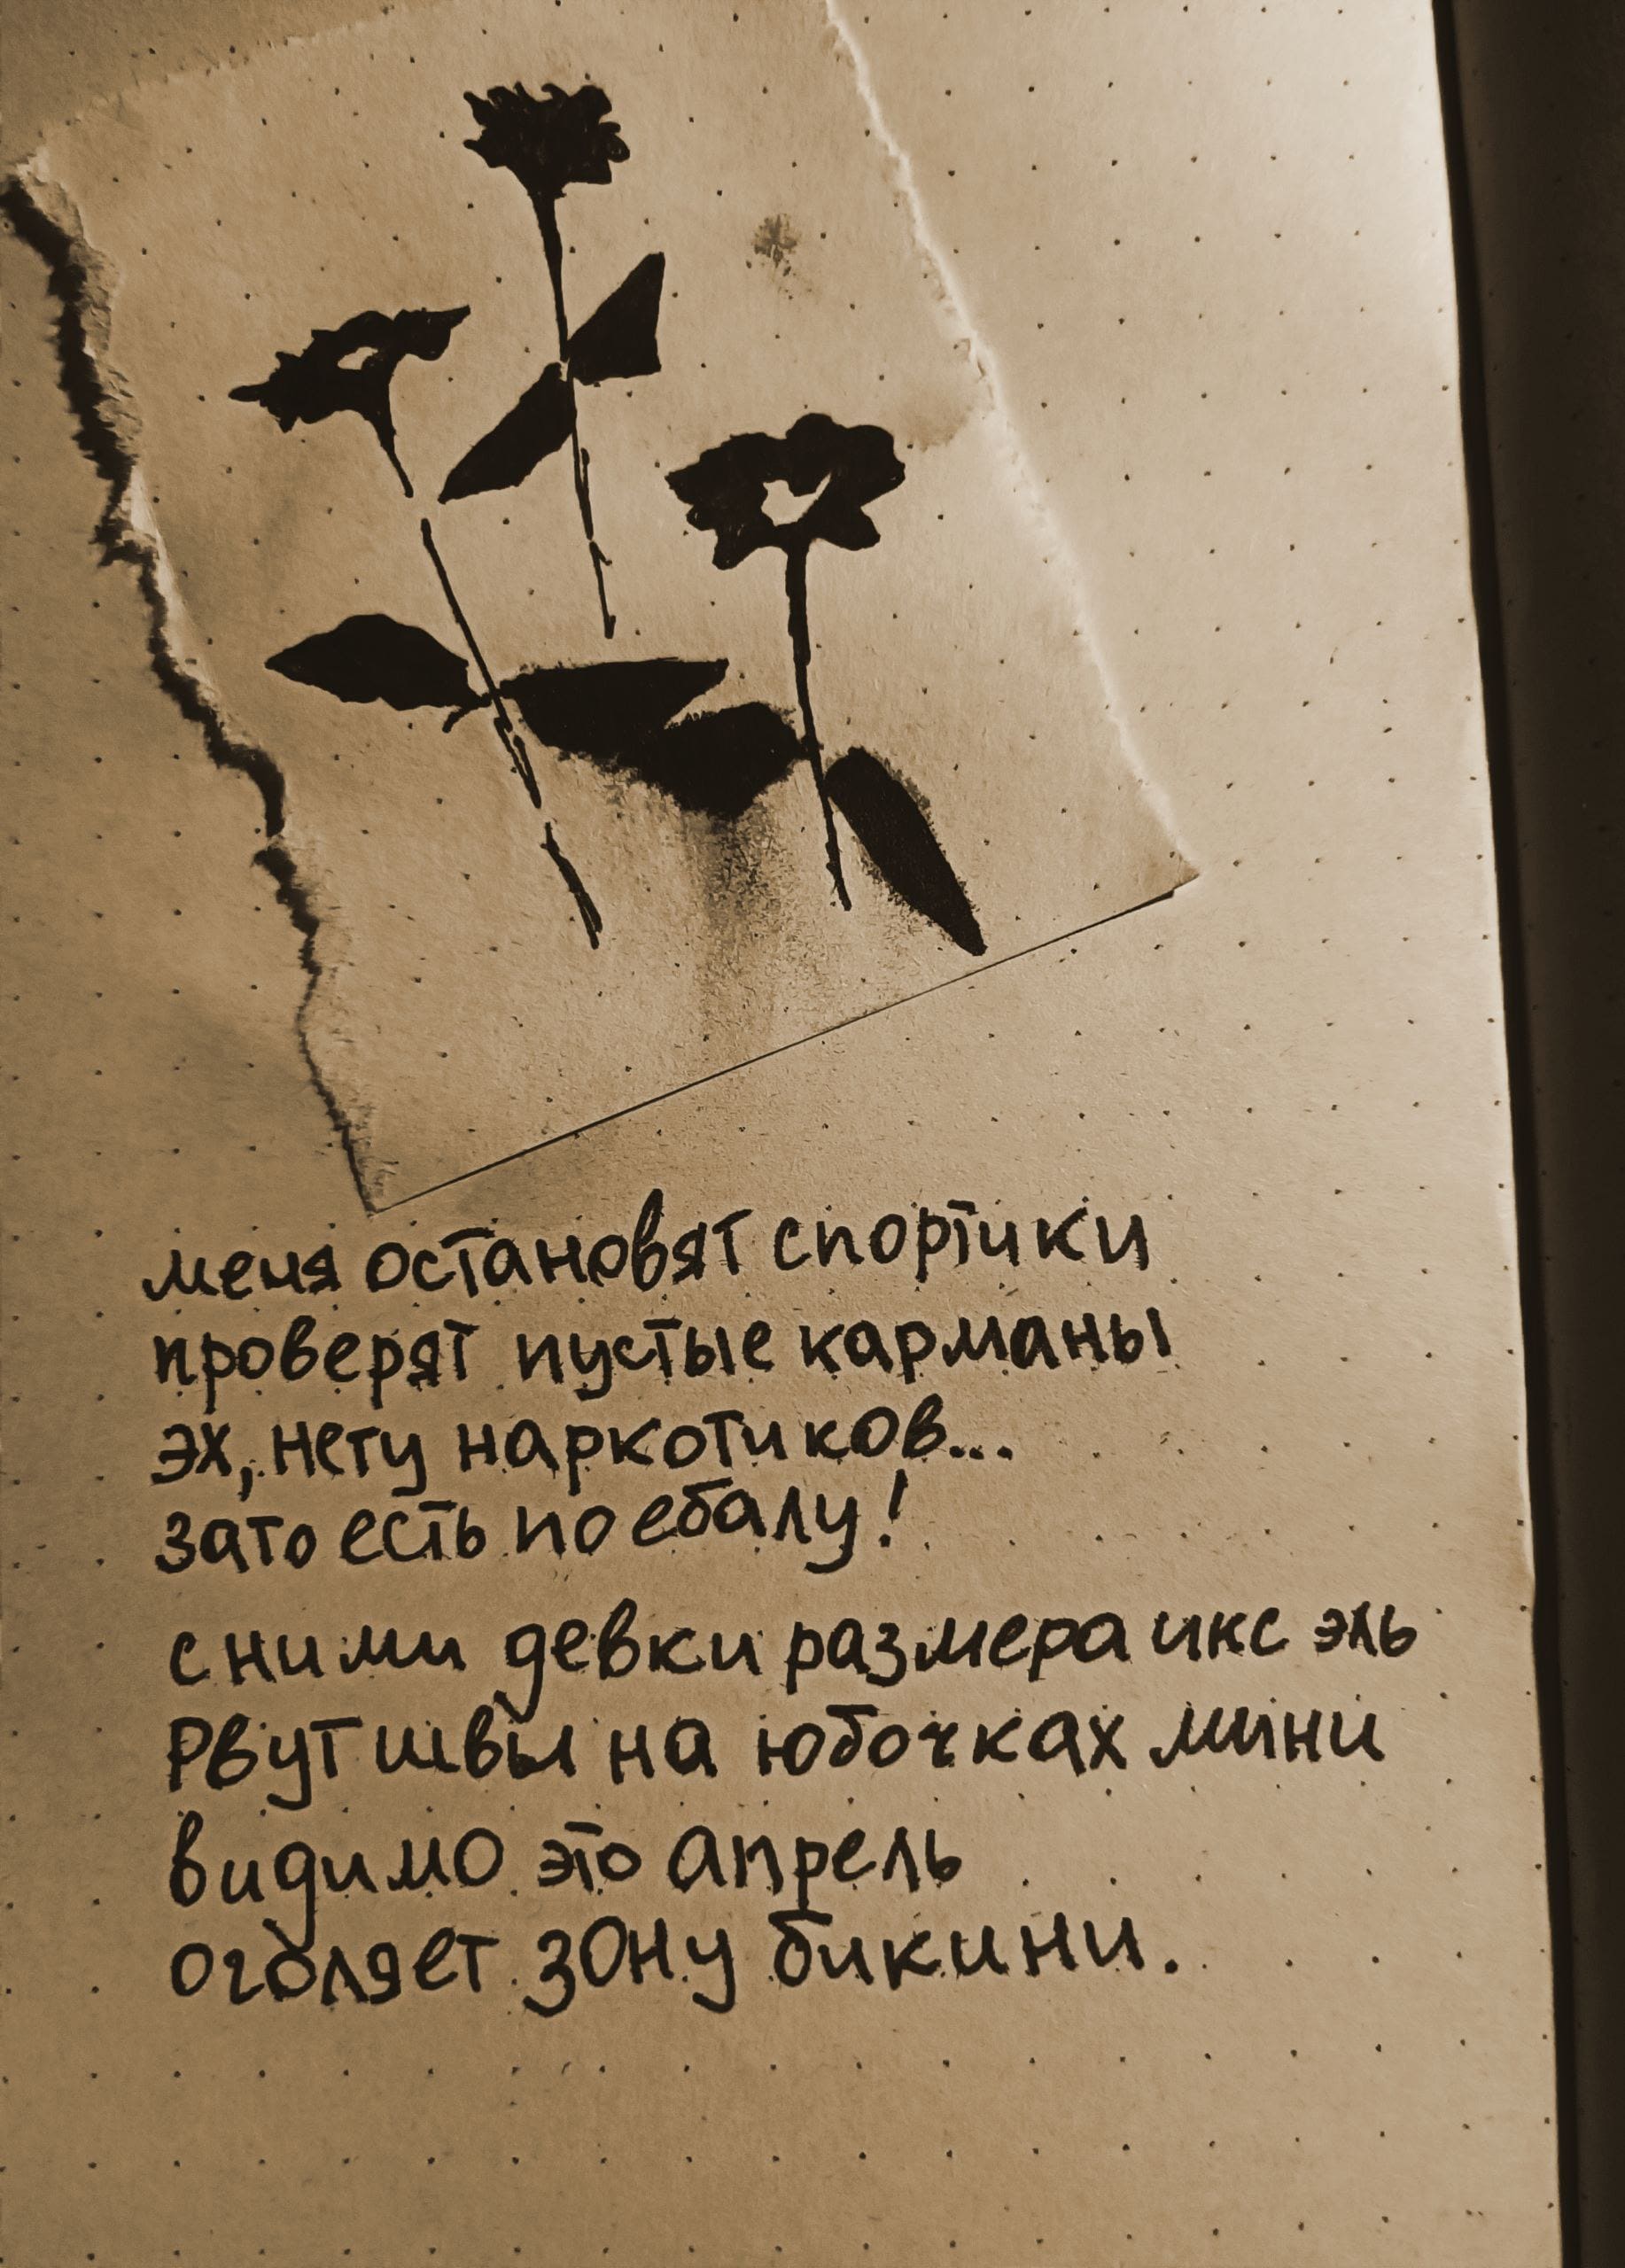 меня остановят спортики
проверят пустые карманы
эх, нету наркотиков...
зато есть по ебалу!
с ними девки размера икс эль
рвут швы на юбочках мини
видимо это апрель
оголяет зону бикини.